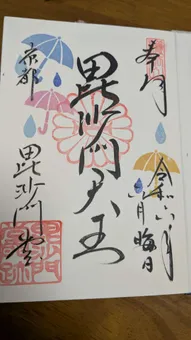 奉拝
令和六年
六月晦日
毘沙門天王
京都
毘沙門堂